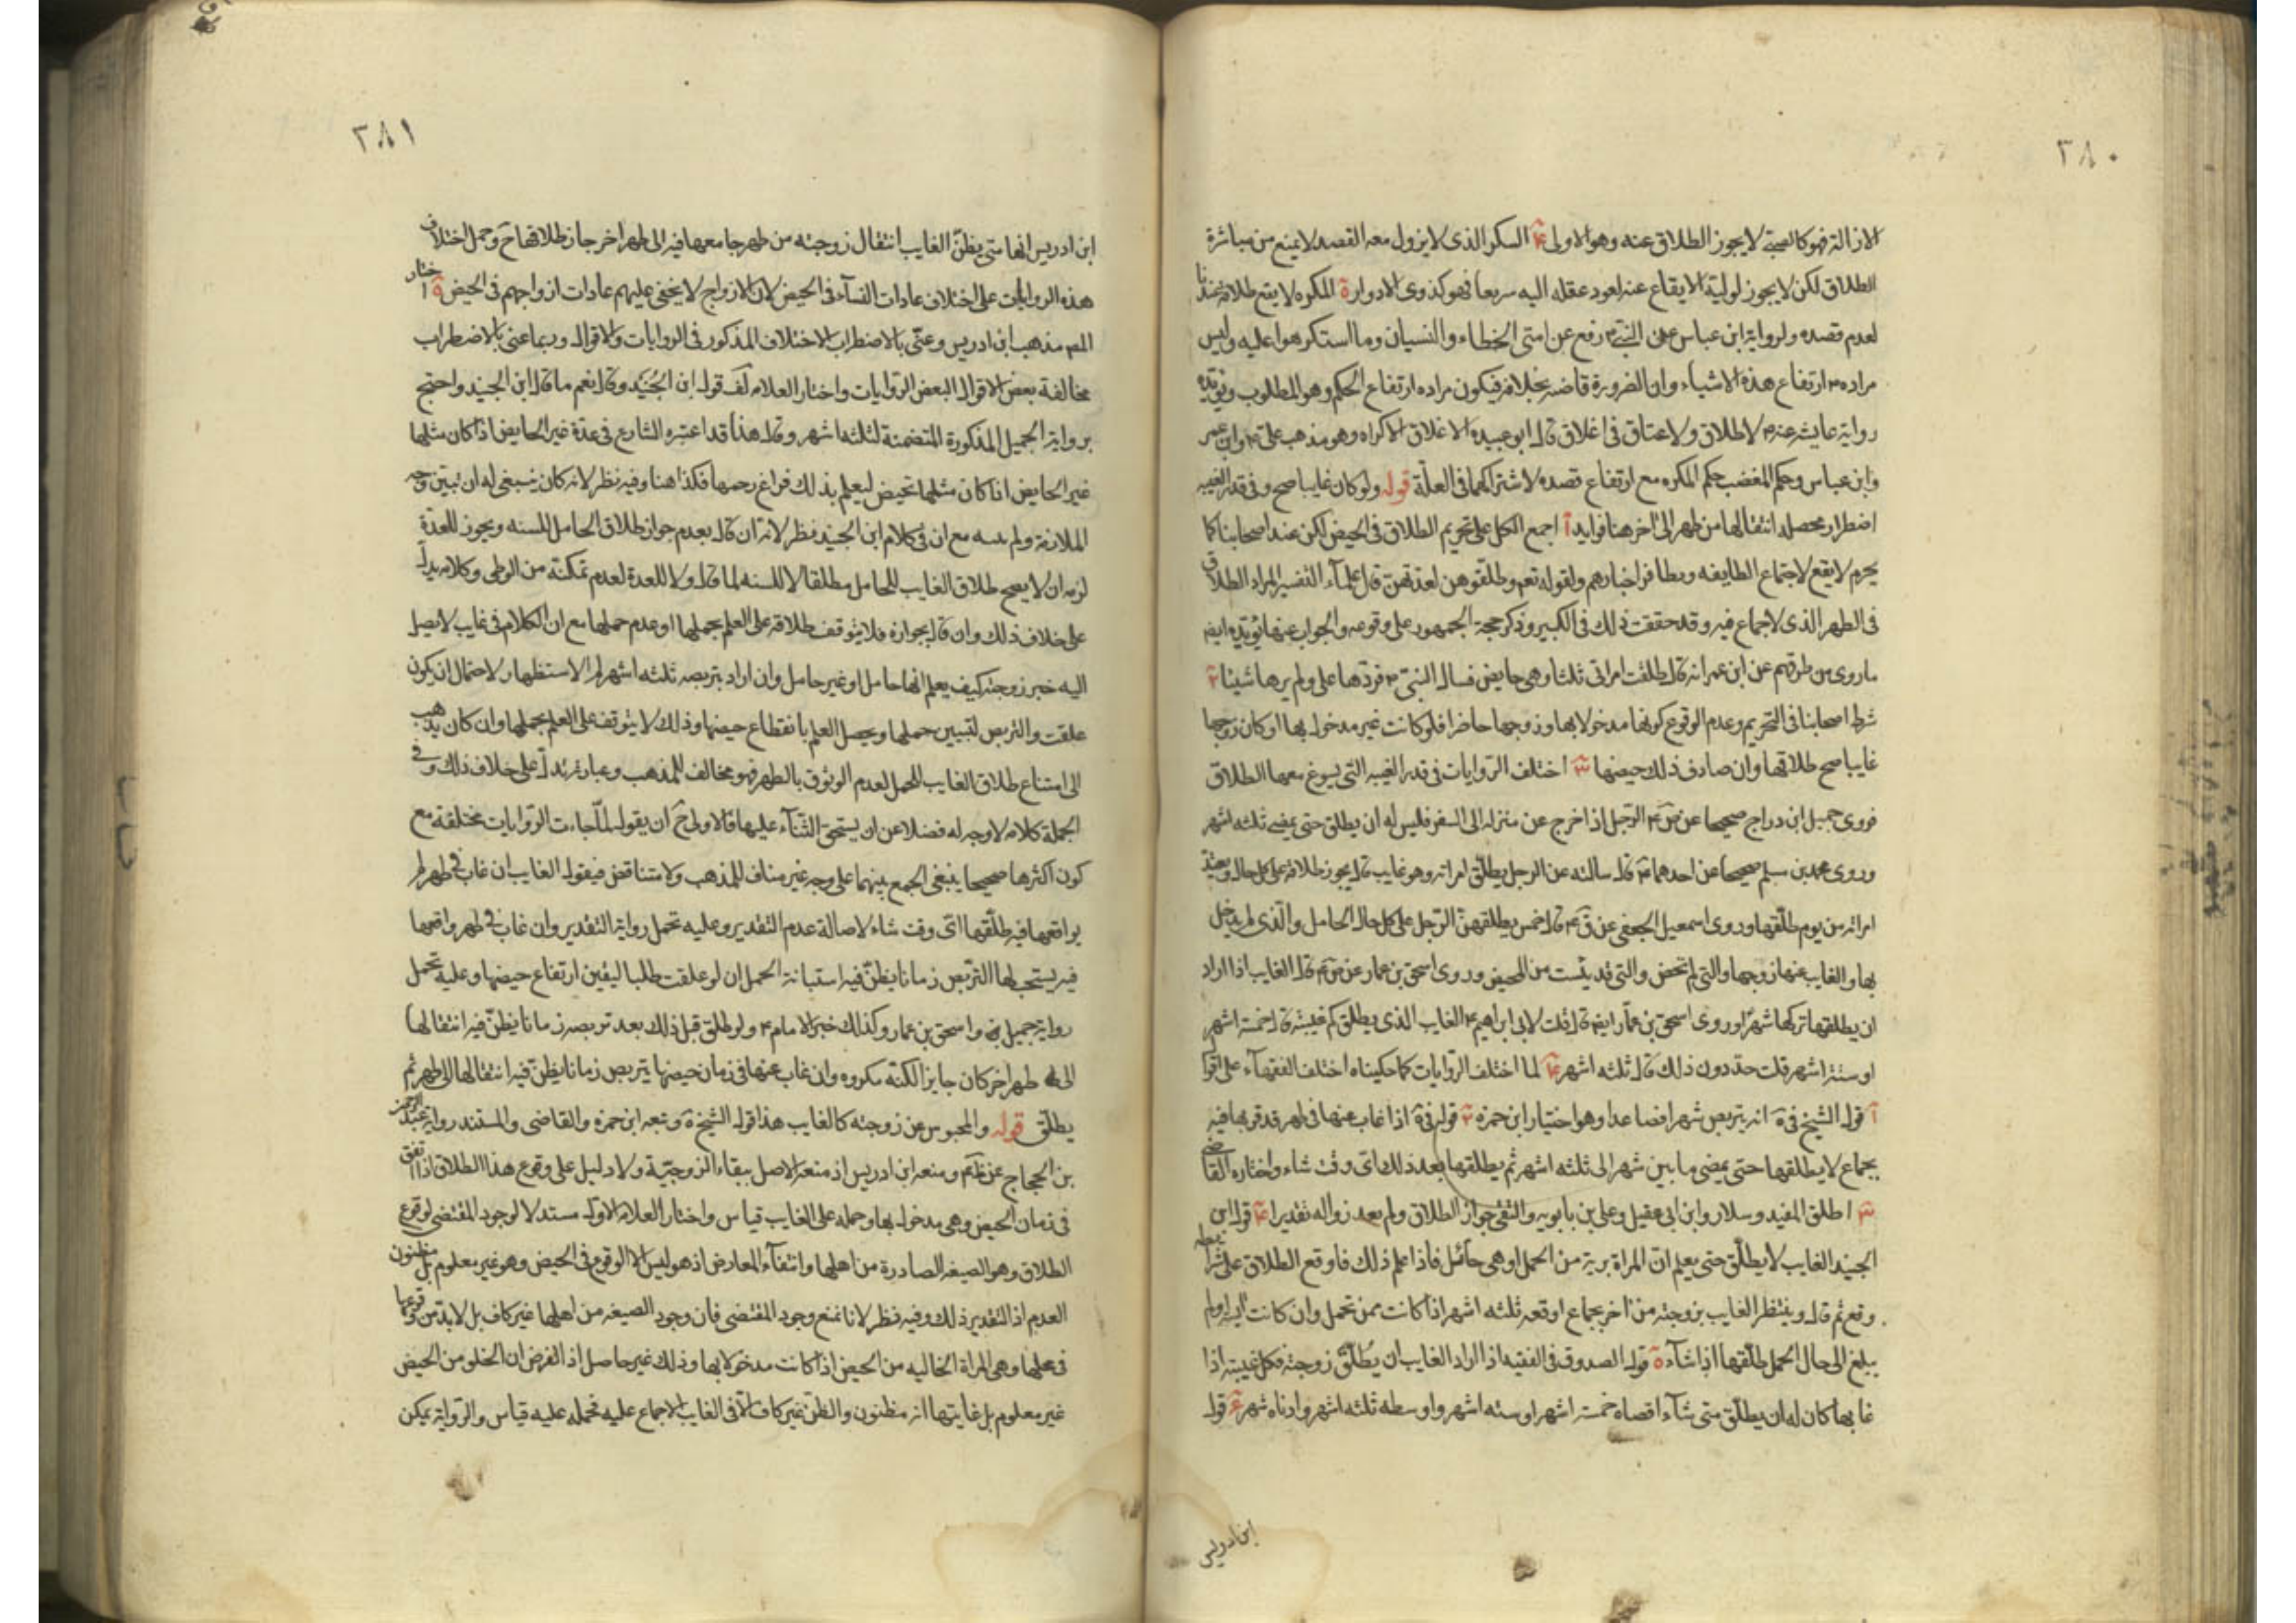 ٣٨٠
الازالة فهو كالصبي لا يجوز الطلاق عنه وهو الاولى ٤ السكر الذى لا يزول معه القصد لا يمنع من مباشرة
الطلاق لكن لا يجوز لوليه الايقاع عنه لعود عقله اليه سريعا فهو كذوى الادوار ة المكره لا يقع طلاقه عندنا
لعدم قصده ولرواية ابن عباس عن النبى ص رفع عن امتى الخطاء والنسيان وما استكرهوا عليه وليس
مراده ص ارتفاع هذه الاشياء وان الضرورة قاضيه بخلافه فيكون مراده ارتفاع الحكم وهو المطلوب ويؤيده
رواية عايشه عنه ص لا طلاق ولا عتاق فى اغلاق قال ابو عبيده الاغلاق الاكراه وهو مذهب على ع وابن عمر
وابن عباس وحكم المغضب حكم المكره مع ارتفاع قصده لاشتراكهما فى العلة قوله ولو كان غايبا صح وفى قدر الغيبه
اضطرار محصله انتقالها من طهر الى اخر هنا فوايد آ اجمع الكل على تحريم الطلاق فى الحيض لكن عند اصحابنا كما
يحرم لا يقع لاجتماع الطايفه وتظافر اخبارهم ولقوله تعم وطلقوهن لعدتهن قال علمآء التفسير المراد الطلاق
فى الطهر الذى لا جماع فيه وقد حققت ذلك فى الكبير وذكر حجة الجمهور على وقوعه والجواب عنها يؤيده ايضه
ما روى من طرقهم عن ابن عمر انه قال طلقت امراتى ثلثا وهى حايض فسال النبى ص فردها على ولم يرها شيئا ٢
شرط اصحابنا فى التحريم وعدم الوقوع كونها مدخولا بها وزوجها حاضرا فلو كانت غير مدخول بها او كان زوجها
غايبا صح طلاقها وان صادف ذلك حيضها ٣ اختلف الروايات فى قدر الغيبه التى يسوغ معها الطلاق
فروى جميل ابن دراج صحيحا عن ص ع الرجل اذا خرج عن منزله الى السفر فليس له ان يطلق حتى يمضى ثلثه اشهر
وروى محمد بن مسلم صحيحا عن احدهما ع قال سالته عن الرجل يطلق امراته وهو غايب قال يجوز طلاقه على كل حال وتعتد
امراته من يوم طلقها وروى اسمعيل الجعفى عن ق ع قال خمس يطلقهن الرجل على كل حال الحامل والذى لم يدخل
بها والغايب عنها زوجها والتى لم تحض والتى قد يئست من المحيض وروى اسحق بن عمار عن ص ع قال الغايب اذا اراد
ان يطلقها تركها شهرا وروى اسحق بن عمار ايضه قال قلت لابى ابراهيم ع الغايب الذى يطلق كم غيبته قال خمسة اشهر
او ستة اشهر قلت حد دون ذلك قال ثلثه اشهر ٤ لما اختلف الروايات كما حكيناه اختلف الفقهآء على اقوال
آ قول الشيخ فى ة انه يتربص شهرا فصاعدا وهو اختيار ابن حمزه ٢ قوله فى ة اذا غاب عنها فى طهر قد قربها فيه
بجماع لا يطلقها حتى يمضى ما بين شهر الى ثلثه اشهر ثم يطلقها بعد ذلك اى وقت شاء واختاره القاضى
٣ اطلق المفيد وسلار وابن ابى عقيل وعلى بن بابويه والتقى جواز الطلاق ولم يعد زواله تقديرا ٤ قول ابن
الجنيد الغايب لا يطلق حتى يعلم ان المراة برية من الحمل او هى حآئل فاذا علم ذلك فاوقع الطلاق على شرايطه
وقع ثم قال وينتظر الغايب بزوجته من اخر جماع اوقعه ثلثه اشهر اذا كانت ممن تحمل وان كانت ايسه او لم
يبلغ الى حال الحمل طلقها اذا شآء ة قول الصدوق فى الفقيه اذا اراد الغايب ان يطلق زوجته فكل غيبته اذا
غابها كان له ان يطلق متى شآء اقصاه خمسة اشهر او سته اشهر واوسطه ثلثه اشهر وادناه شهر قول
ابن ادريس
٣٨١
ابن ادريس انها متى يظن الغايب انتقال زوجته من طهر جامعها فيه الى طهر اخر جاز طلاقها ح وحمل اختلاف
هذه الروايات على اختلاف عادات النسآء فى الحيض لان الازواج لا يخفى عليهم عادات ازواجهم فى الحيض واختار
المص مذهب ابن ادريس وعنى بالاضطراب الاختلاف المذكور فى الروايات والاقوال وربما عنى بالاضطراب
مخالفة بعض الاقوال لبعض الروايات واختار العلامه قول ابن الجنيد وقال نعم ما قال ابن الجنيد واحتج
برواية الجميل المذكورة المتضمنة لثلثه اشهر وقال هذا قد اعتبره الشارع فى عدة غير الحايض اذا كان مثلها
غير الحايض اذا كان مثلها تحيض ليعلم بذلك فراغ رحمها فكذا هنا وفيه نظر لانه كان ينبغى له ان يبين وجه
الملازمة ولم يبينه مع ان فى كلام ابن الجنيد نظر لانه ان قال بعدم جواز طلاق الحامل للسنه ويجوز للعدة
لزمه ان لا يصح طلاق الغايب للحامل مطلقا لا للسنه لما قال ولا للعدة لعدم تمكنه من الوطى وكلامه يدل
على خلاف ذلك وان قال بجوازه فلا يتوقف طلاقه على العلم بحملها او عدم حملها مع ان الكلام فى غايب لا يصل
اليه خبر زوجته كيف يعلم انها حامل او غير حامل وان اراد بتربصه ثلثه اشهر الاستظهار لاحتمال ان يكون
علقت والتربص لتبيين حملها ويحصل العلم بانقطاع حيضها وذلك لا يتوقف على العلم بحملها وان كان يذهب
الى امتناع طلاق الغايب للحمل لعدم الوثوق بالطهر فهو مخالف للمذهب وعبارته تدل على خلاف ذلك وفى
الجملة كلامه لا وجه له فضلا عن ان يستحق الثنآء عليها فالاولى ح ان يقول لما جاءت الروايات مختلفة مع
كون اكثرها صحيحا ينبغى الجمع بينهما على وجه غير مناف للمذهب ولا متناقض فيقول الغايب ان غاب فى طهر لم
يواقعها فيه طلقها اى وقت شاء لاصالة عدم التقدير وعليه تحمل رواية التقدير وان غاب فى طهر واقعها
فيه يستحب لها التربص زمانا يظن فيه استبانة الحمل ان لو علقت طلبا ليقين ارتفاع حيضها وعليه تحمل
رواية جميل واسحق بن عمار وكذلك خبر الامام ع ولو طلق قبل ذلك بعد تربصه زمانا يظن فيه انتقالها
الى طهر اخر كان جايزا لكنه مكروه وان غاب عنها فى زمان حيضها يتربص زمانا يظن فيه انتقالها الى طهر ثم
يطلق قوله والمحبوس عن زوجته كالغايب هذا قول الشيخ ة وتبعه ابن حمزه والقاضى والمستند رواية عبد الرحمن
بن الحجاج عن ظم ومنعه ابن ادريس اذ منعه الاصل ببقاء الزوجية ولا دليل على وقوع هذا الطلاق اذا اتفق
فى زمان الحيض وهى مدخول بها وحمله على الغايب قياس واختار العلامه الاول مستدلا لوجود المقتضى لوقوع
الطلاق وهو الصيغه الصادرة من اهلها وانتفآء المعارض اذ هو ليس الا الوقوع فى الحيض وهو غير معلوم بل مظنون
العدم اذ التقدير ذلك وفيه نظر لانا نمنع وجود المقتضى فان وجود الصيغه من اهلها غير كاف بل لا بد من وقوعها
فى محلها وهى المراة الخاليه من الحيض اذا كانت مدخولا بها وذلك غير حاصل اذ الفرض ان الخلو من الحيض
غير معلوم بل غايتها انه مظنون والظن غير كاف الا فى الغايب لاجماع عليه فحمله عليه قياس والرواية يمكن